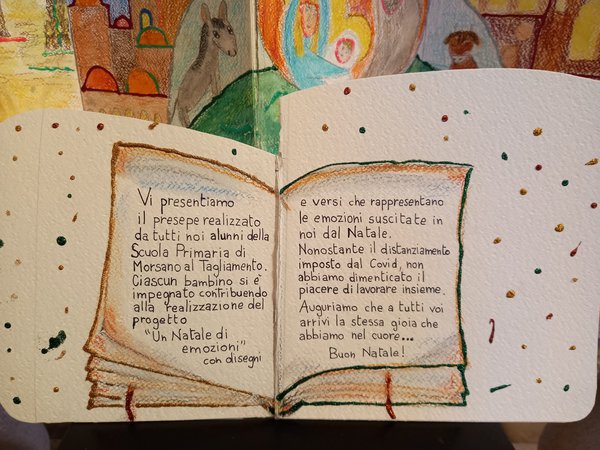 Vi presentiamo
il presepe realizzato
da tutti noi alunni della
Scuola Primaria di
Morsano al Tagliamento.
Ciascun bambino si è
impegnato contribuendo
alla realizzazione del
progetto
"Un Natale di
emozioni"
con disegni
e versi che rappresentano
le emozioni suscitate in
noi dal Natale.
Nonostante il distanziamento
imposto dal Covid, non
abbiamo dimenticato il
piacere di lavorare insieme.
Auguriamo che a tutti voi
arrivi la stessa gioia che
abbiamo nel cuore...
Buon Natale!